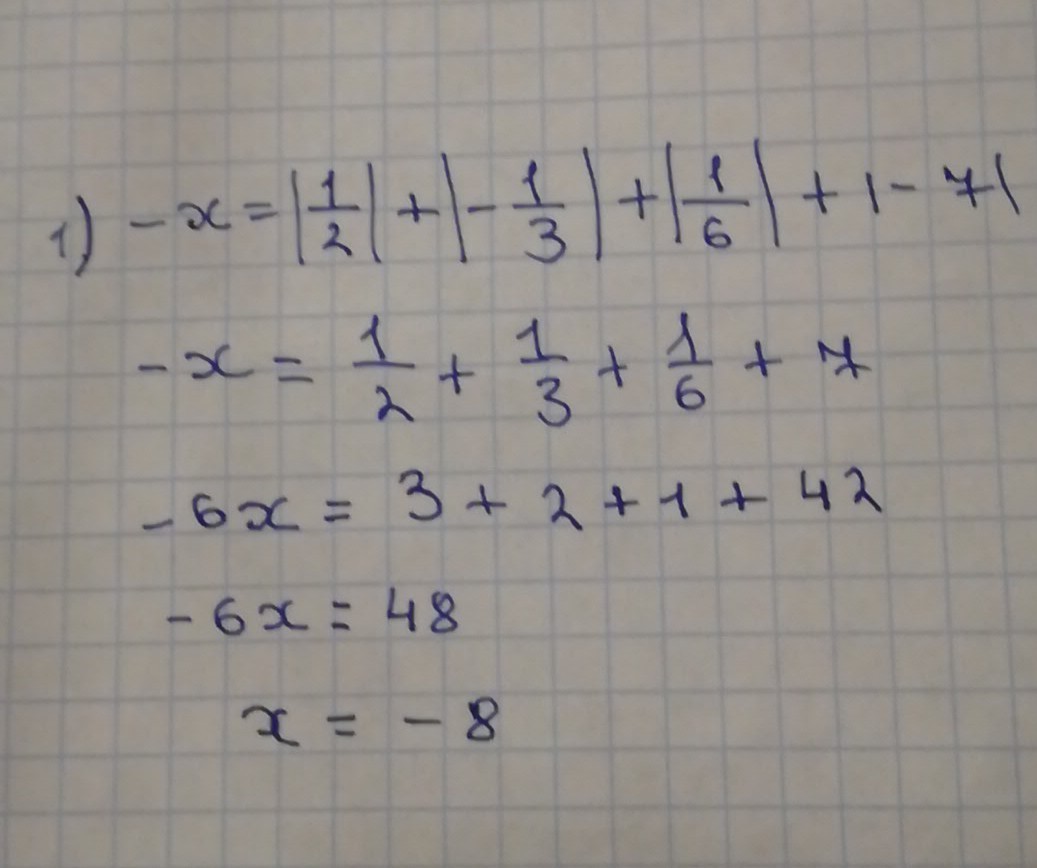 1) -x = |1/2| + |-1/3| + |1/6| + |-7|
-x = 1/2 + 1/3 + 1/6 + 7
-6x = 3 + 2 + 1 + 42
-6x = 48
x = -8